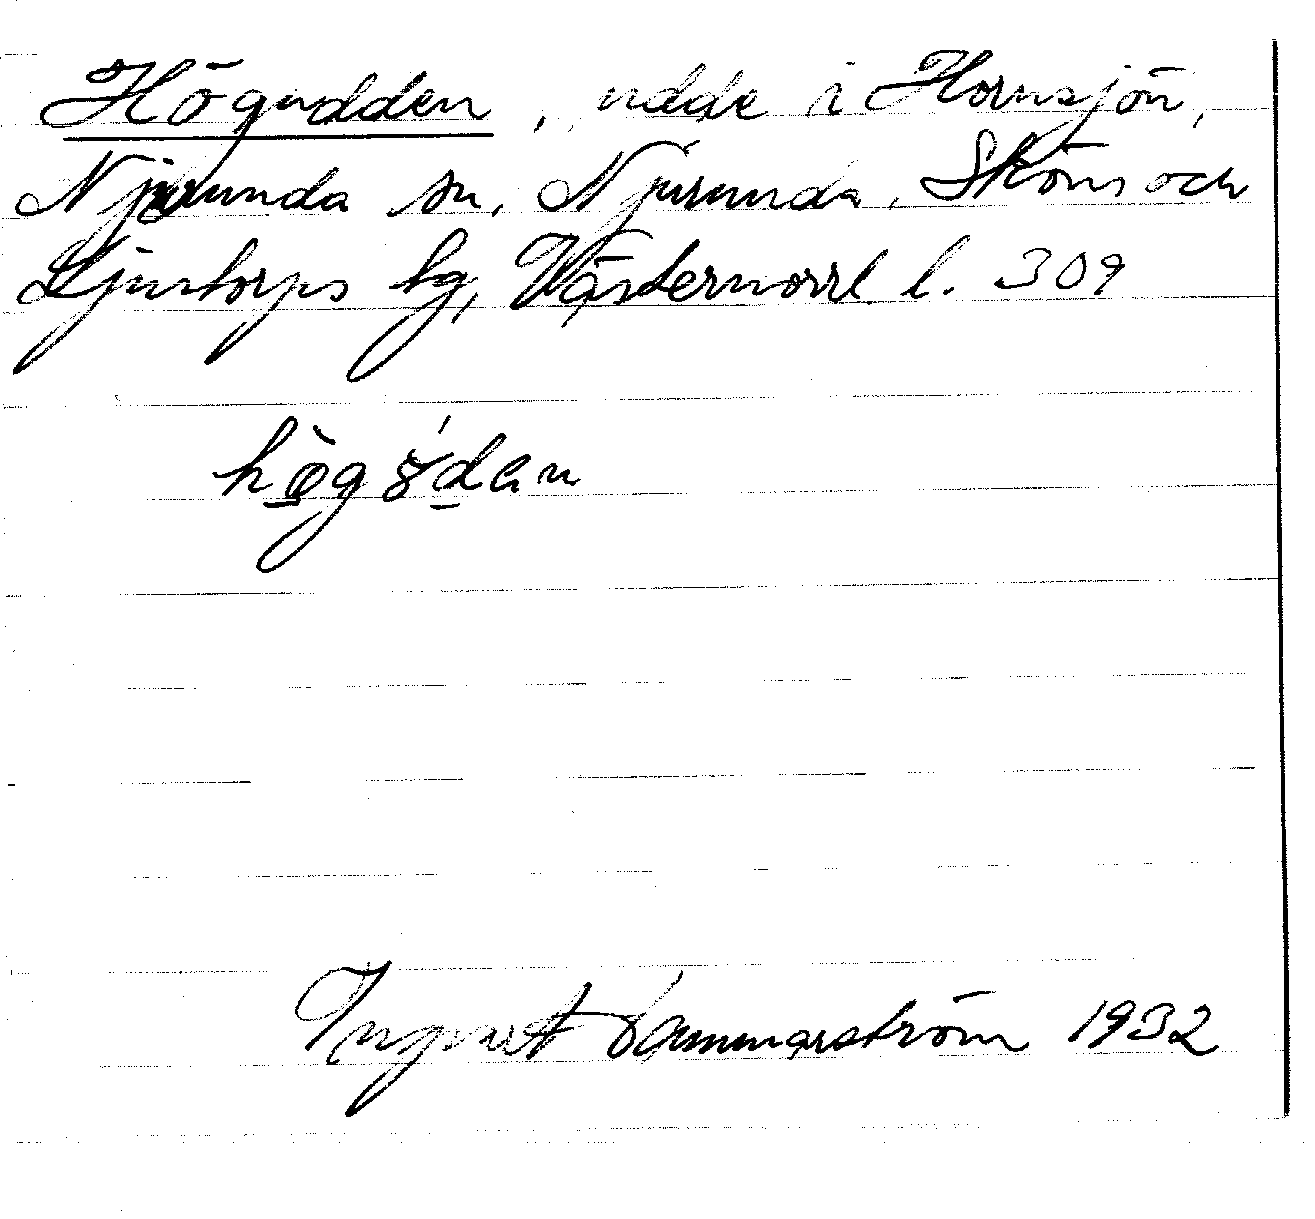 Högudden, udde i Hornsjön,
Njurunda sn, Njurunda, Sköns och
Ljustorps tg, Västernorrl l. 309
Ingwart Dammarström 1932